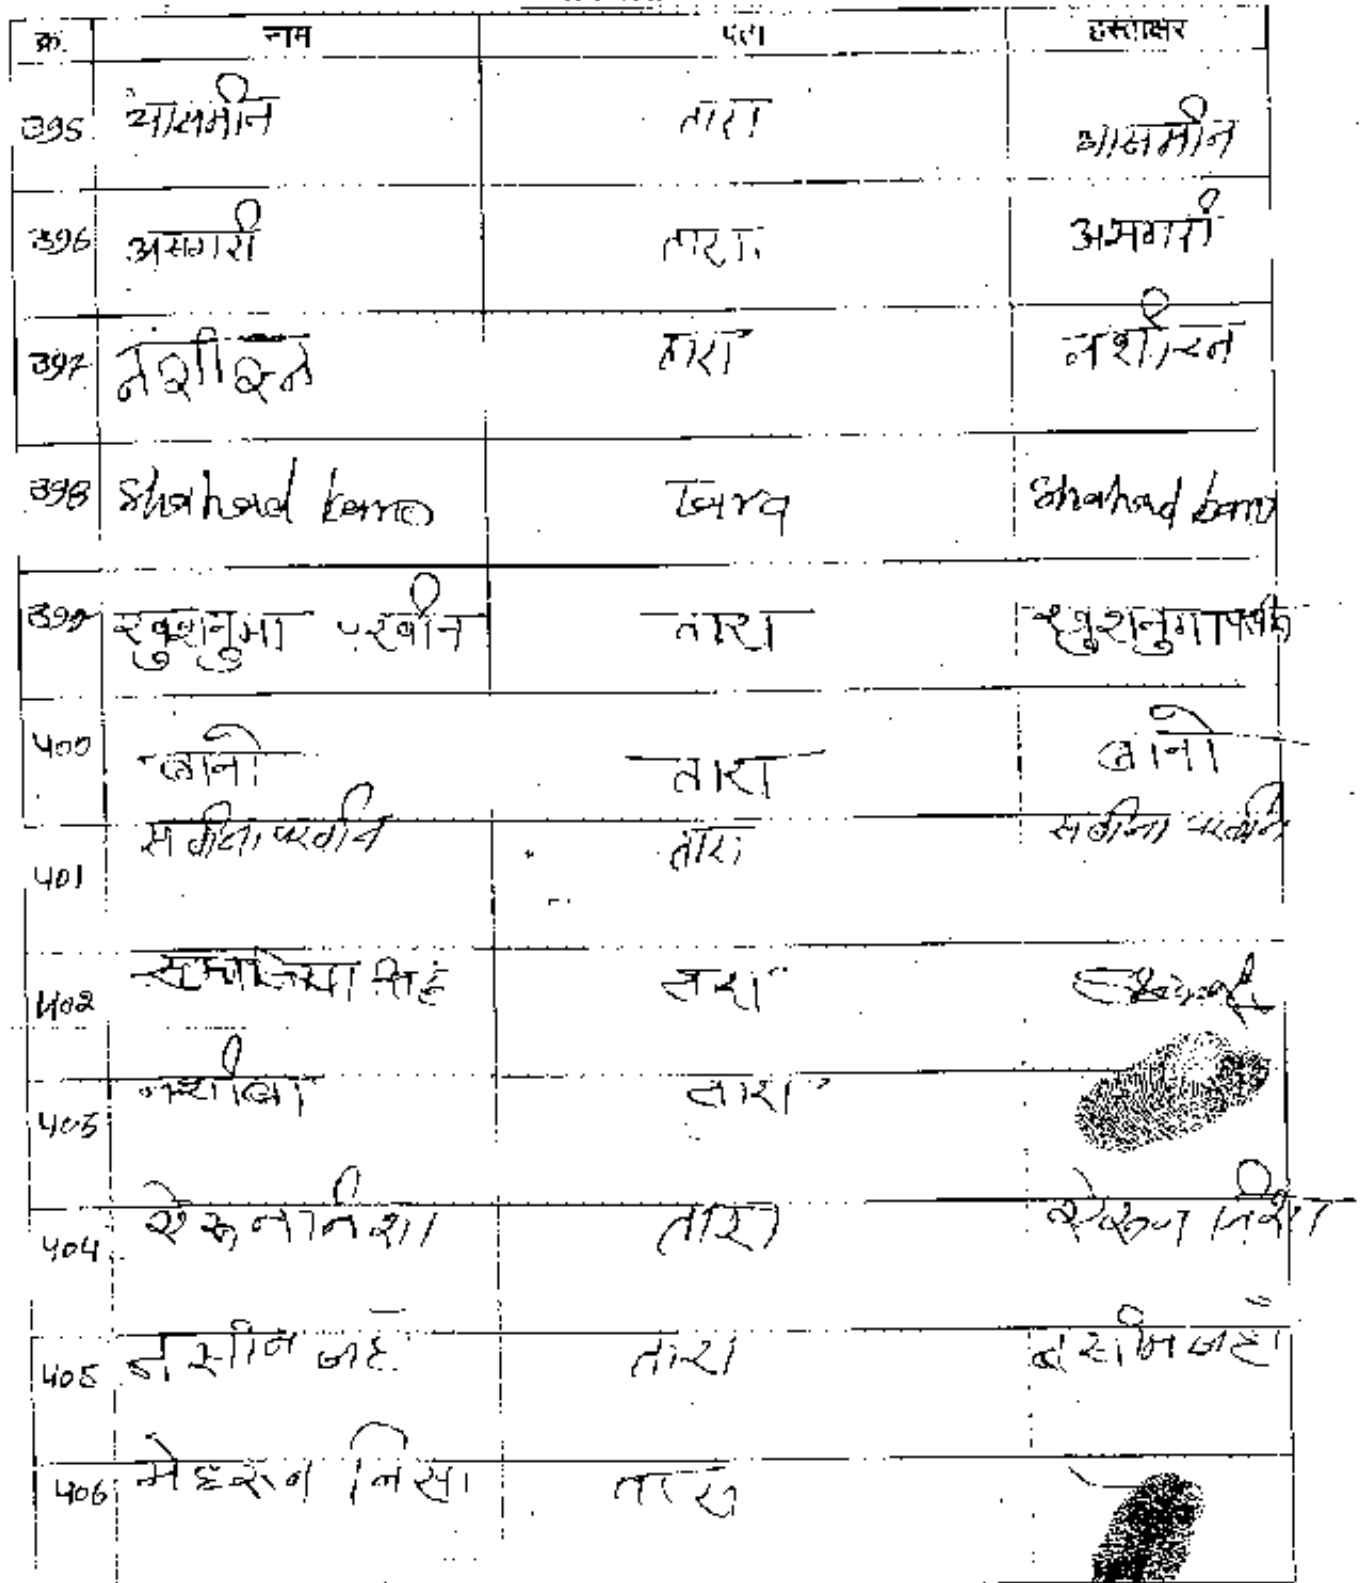 क्र. नाम पता हस्ताक्षर
395 यासमीन तारा यासमीन
396 असगरी तारा असगरी
397 नशीरन तारा नशीरन
398 Shahad bano Tara Shahad bano
399 खुशनुमा परवीन तारा खुशनुमा परवीन
400 बानो तारा बानो
401 सबीना परवीन तारा सबीना परवीन
402 सिंह तारा
403 नशीबा तारा
404 तारा
405 नसीम जहाँ तारा नसीम जहाँ
406 मेहरुन निसा तारा